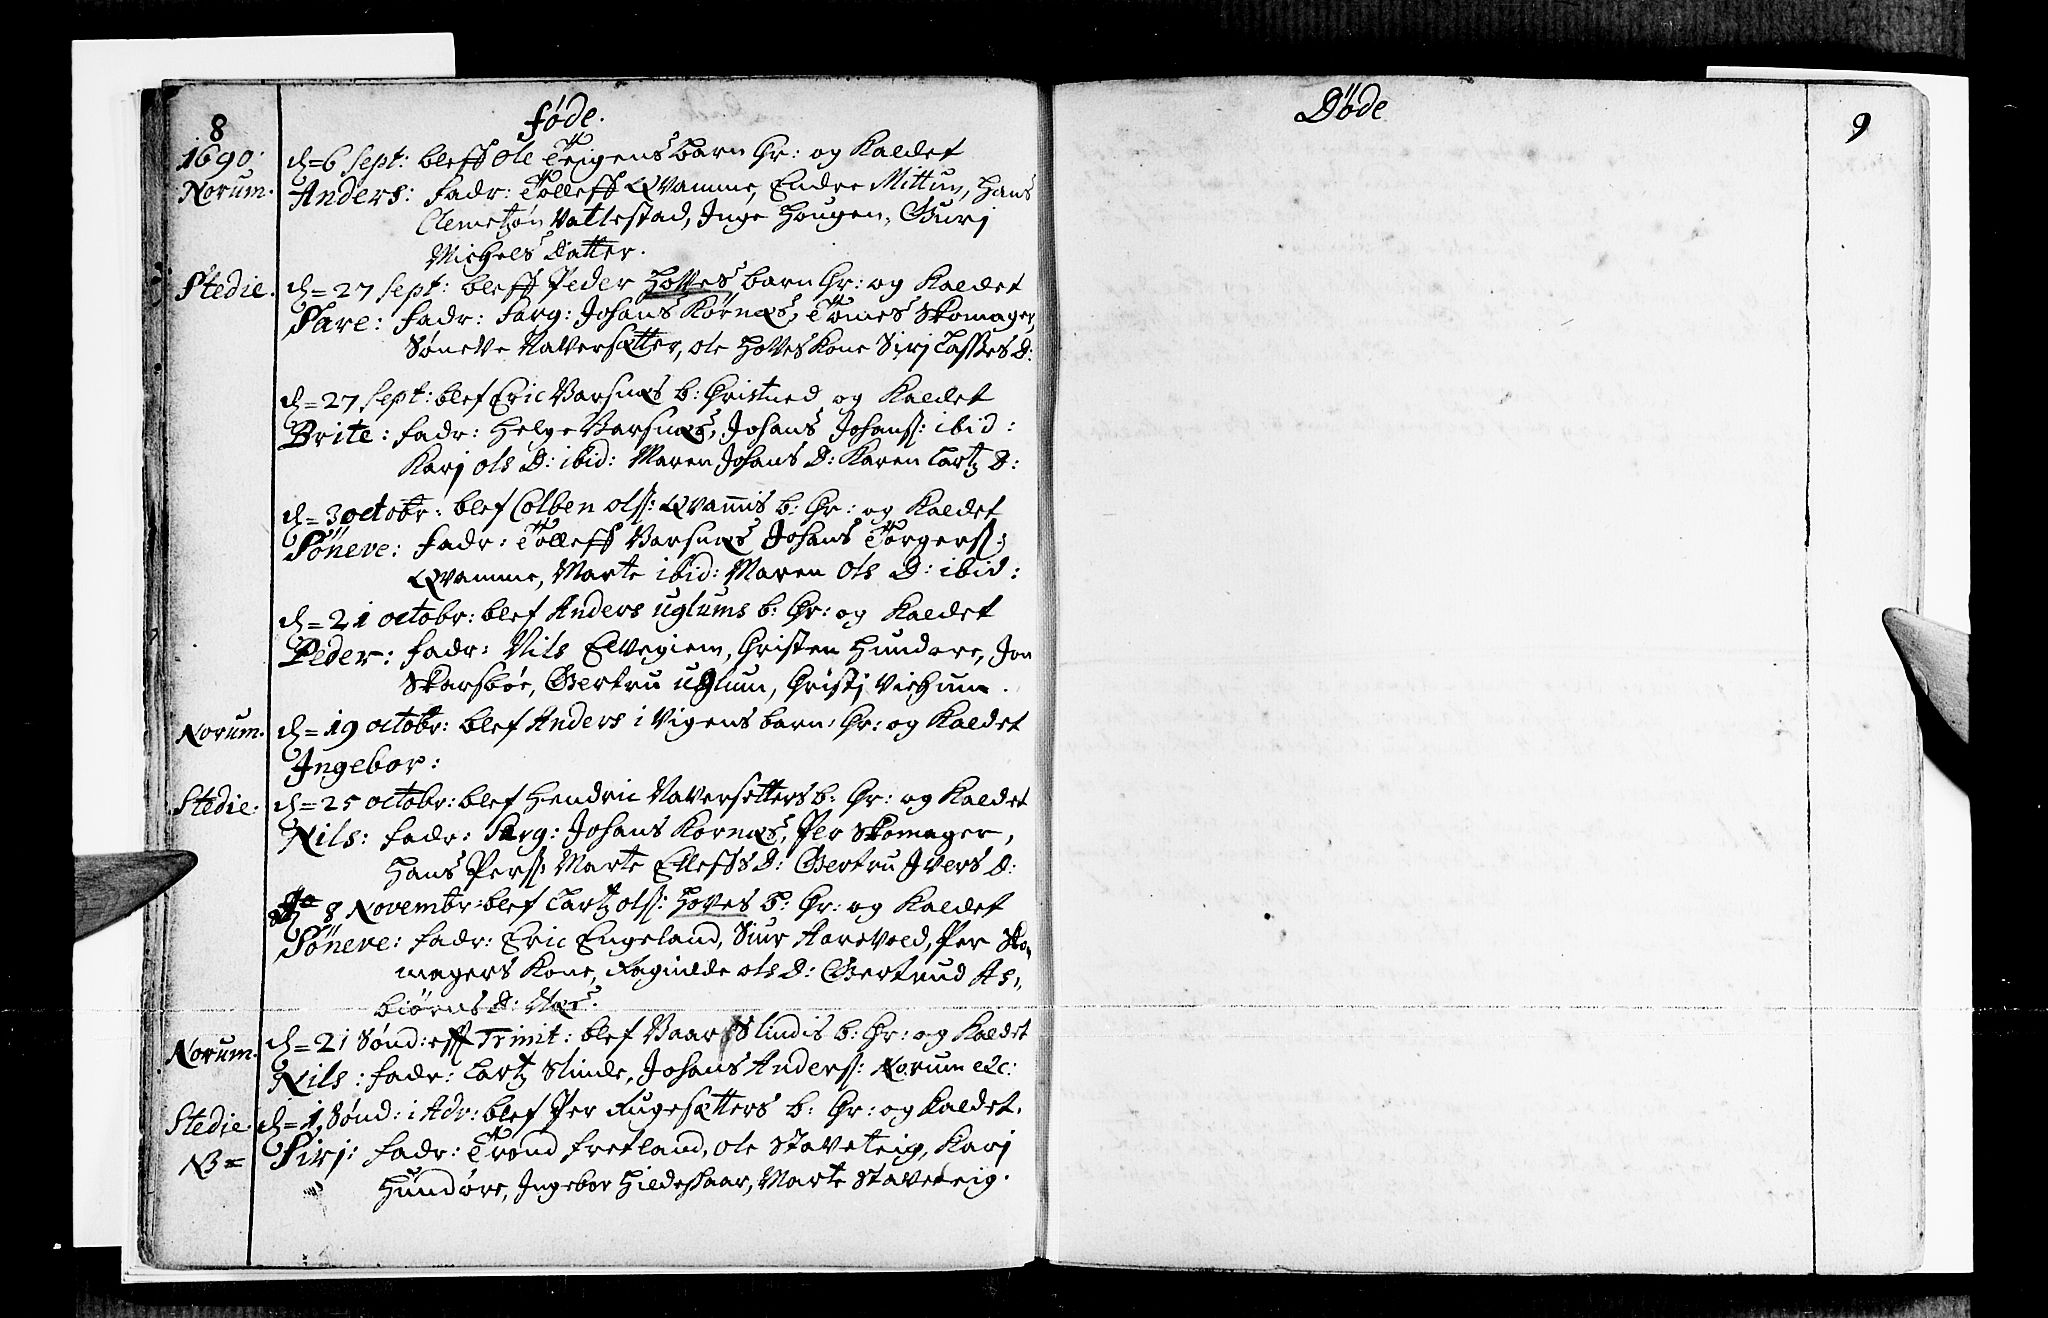 8
føde.
1690.
d=6 sept: bleff Ole Teigens barn Chr: og Kaldet
Norum. Anders: fadr: Tolleff Qvamme, Endre Mittun, Hans
Clemetzøn Vallestad, Inge Hougen, Gurj
Michels Datter.
Stedie. d=27 sept: bleff Peder Hoves barn Chr: og Kaldet
Sare: fadr: Sarg: Johans Kørnæs, Tomes Skomager,
Søneve Naversætter, ole Hoves Kone Sirj Lasses D:
d=27 sept: blef Eric Barsnæs b: Christned og Kaldet
Brite: fadr: Helge Barsnæs, Johans Johanss: ibid:
Karj ols D: ibid: Maren Johans D: Karen Lartz D:
d=3 octobr: blef Colben olss: Qvammis b: Chr: og Kaldet
Søneve: fadr: Tolleff Barsnæs Johans Torgerss:
Qvamme, Marte ibid: Maren Ols D: ibid:
d=21 octobr: blef Anders uglums b: Chr: og Kaldet
Peder: fadr: Nils Elvegiem, Christen Hundere, Jon
Skarsbøe, Gertru uglum, Christj Viehum.
Norum. d=19 octobr: blef Anders i Vigens barn Chr: og Kaldet
Ingebor:
Stedie. d=25 octobr: blef Hendric Naversetters b: Chr: og Kaldet
Nils: fadr: Sarg: Johans Kornæs, Per Skomager,
Hans Perss: Marte Ellefss D: Gertru Ivers D:
8 Novembr: blef Lartz olss: Hoves b: Chr: og Kaldet
Søneve: fadr: Eric Engeland, Siur Aarevold, Per Sko-
magers Kone, Ragnilde ols D: Gertrud As-
biørns D: Næs.
Norum. d=21 Sønd: eff Trinit: blef Baar Slindis b: Chr: og Kaldet
Nils: fadr: Lartz Slinde, Johans Anderss: Norum etc:
Stedie. d=1 Sønd: i Adv: blef Per Rugesætters b: Chr: og Kaldet.
NB= Sirj: fadr: Trond Fretland, ole Staveteig, Karj
Hundøre, Ingebor Hildeskaar, Marte Staveteig.
Døde
9